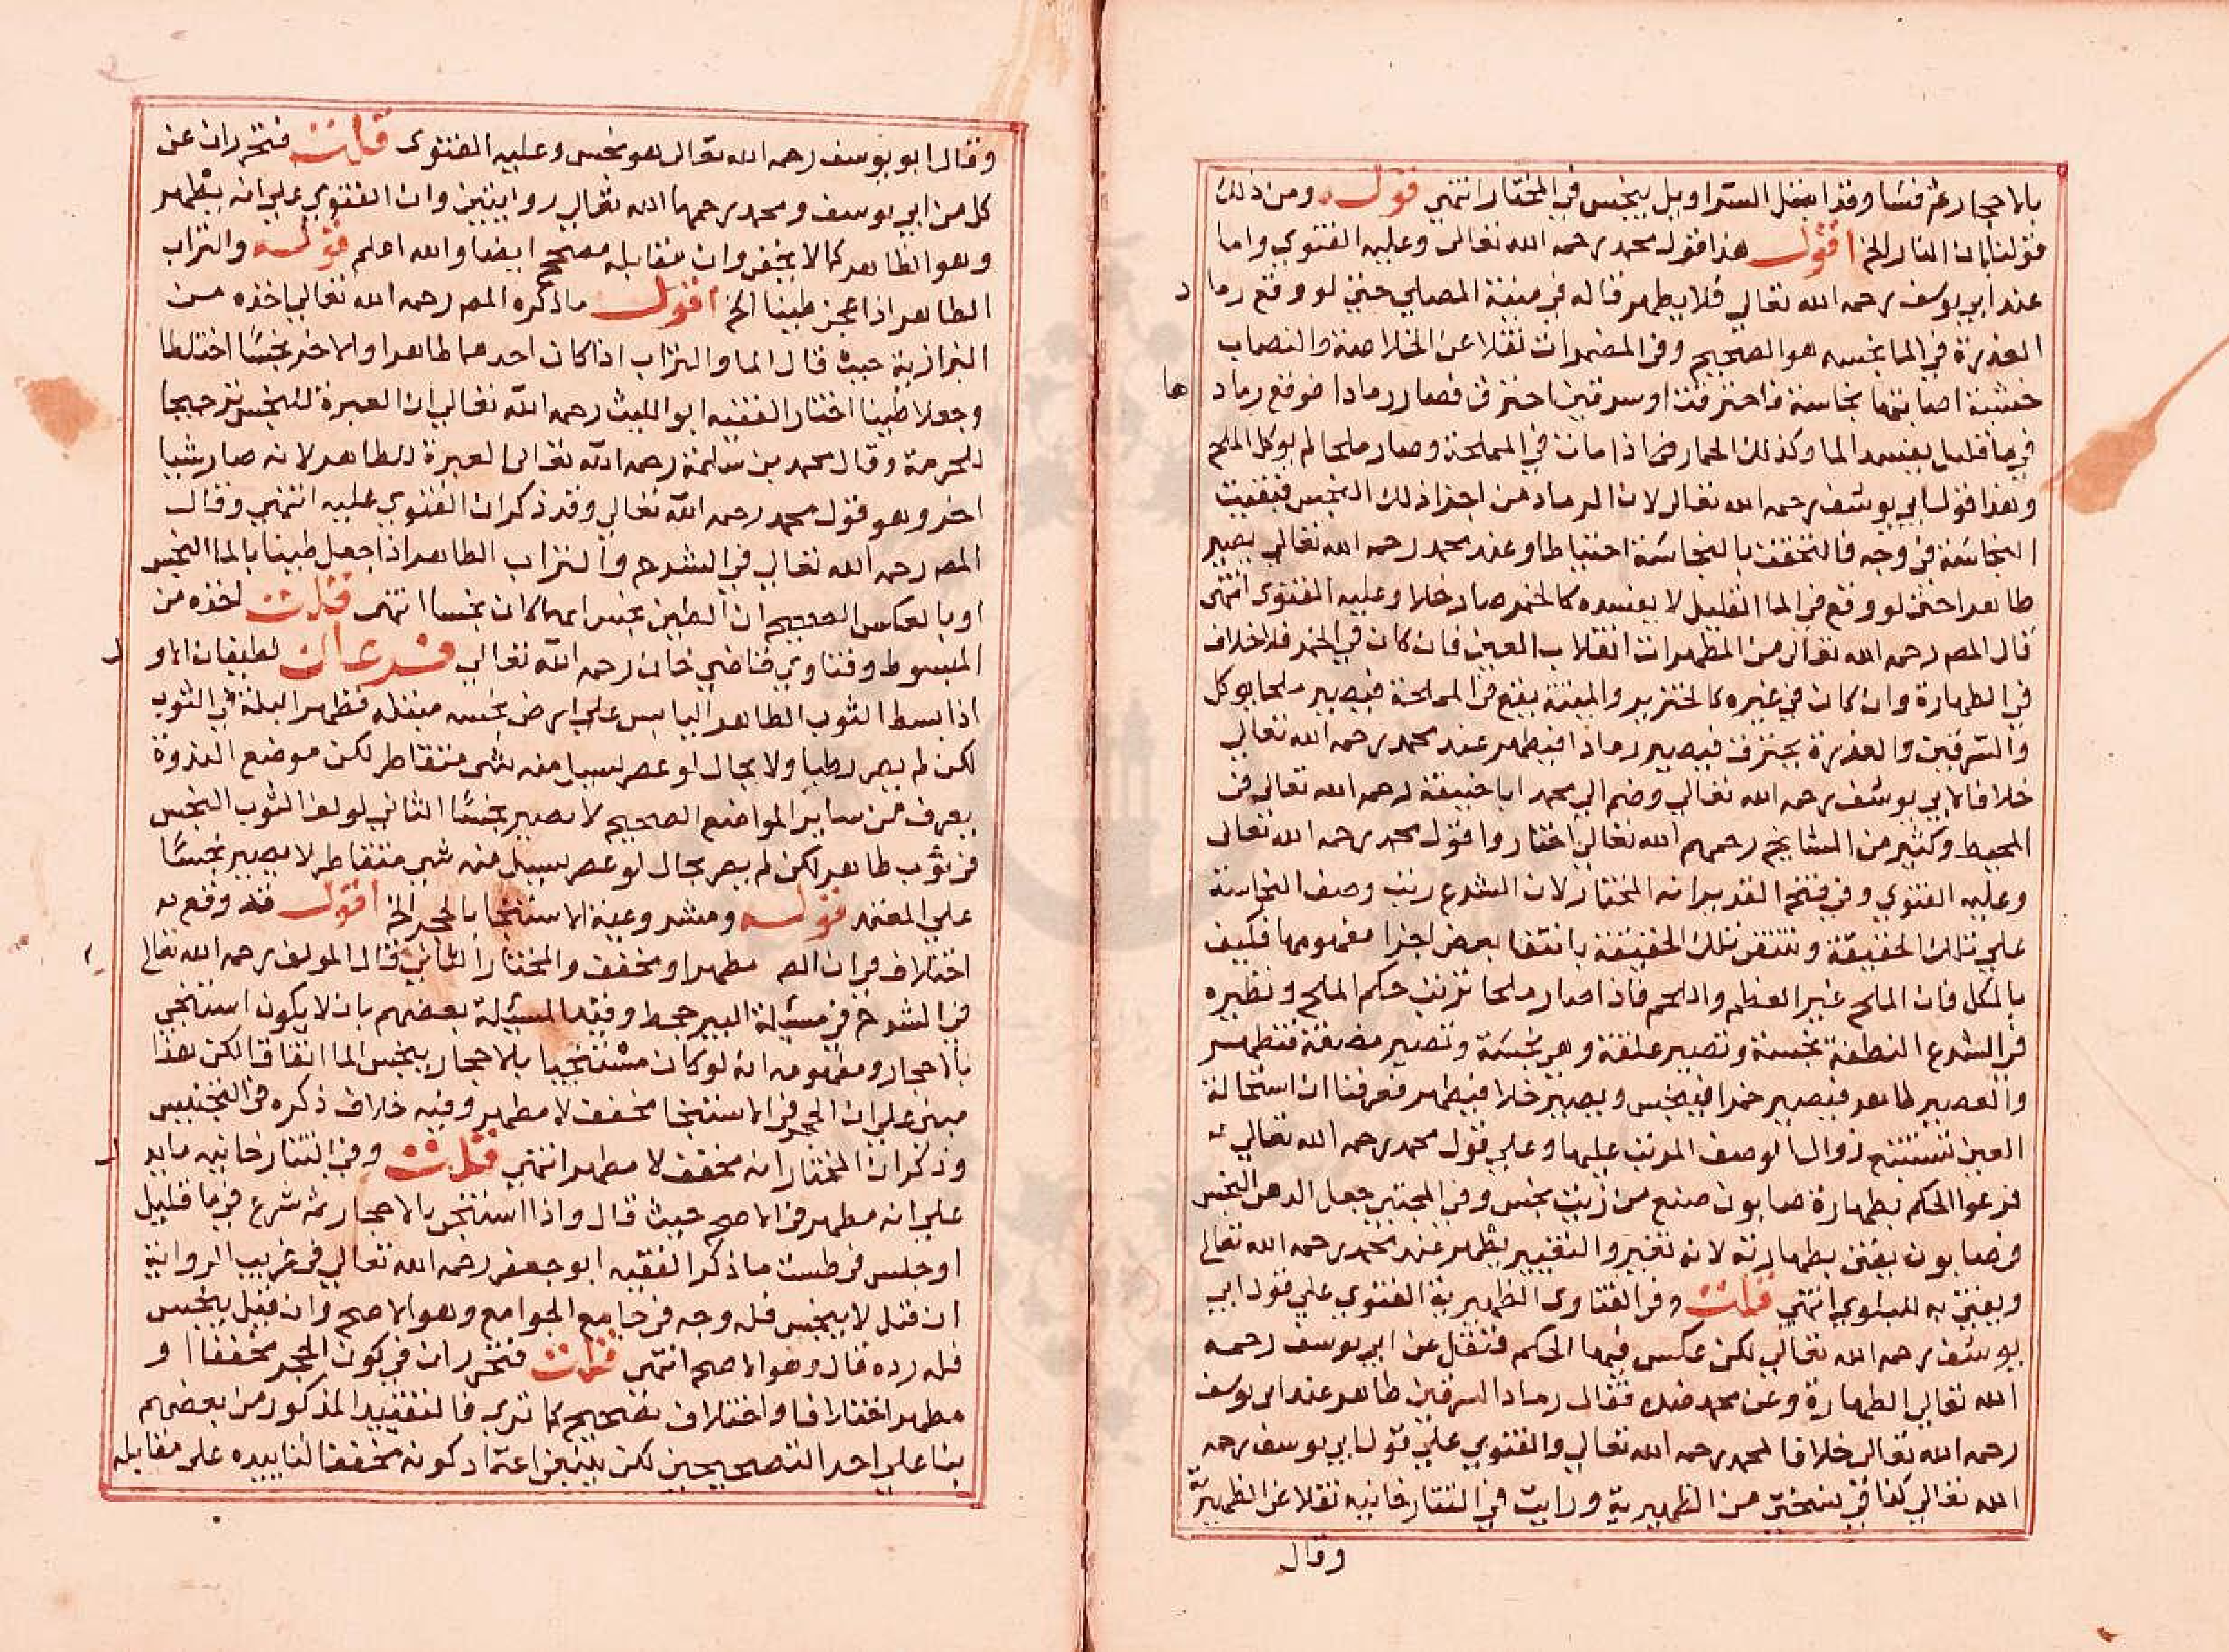 بالاحجار ثم فسا وقد ابتل السراويل ينجس في المختار انتهى قوله ومن ذلك
قولنا بان النار الخ اقول هذا قول محمد رحمه الله تعالى وعليه الفتوي واما
عند ابي يوسف رحمه الله تعالي فلا يطهر قاله في منية المصلي حتى لو وقع رماد
العذرة في الما نجسه هو الصحيح وفي المضمرات نقلا عن الخلاصة والنصاب
خشبة اصابتها نجاسة فاحترقت او سرقين احترق فصار رمادا فوقع رمادها
في ما قليل يفسد الما وكذلك الحمار اذا مات في المملحة وصار ملحا لم يوكل الملح
وهذا قول ابي يوسف رحمه الله تعالى لان الرماد من اجزا ذلك النجس فبقيت
النجاسة من وجه فالتحقت بالنجاسة احتياطا وعند محمد رحمه الله تعالي يصير
طاهرا حتى لو وقع في الما القليل لا يفسده كالخمر صار خلا وعليه الفتوى انتهى
قال المص رحمه الله تعالى من المطهرات انقلاب العين فان كان في الخمر فلا خلاف
في الطهارة وان كان في غيره كالخنزير والميتة يقع في المملحة فيصير ملحا يوكل
والسرقين والعذرة يحترق فيصير رمادا فيطهر عند محمد رحمه الله تعالي
خلافا لابي يوسف رحمه الله تعالي وضم الي محمد ابا حنيفة رحمه الله تعالي في
المحيط وكثير من المشايخ رحمهم الله تعالي اختاروا قول محمد رحمه الله تعالى
وعليه الفتوي وفي فتح القدير انه المختار لان الشرع رتب وصف النجاسة
علي تلك الحقيقة وتنتفي تلك الحقيقة بانتفا بعض اجزا مفهومها فكيف
بالكل فان الملح غير العظم واللحم فاذا صار ملحا ترتب حكم الملح ونظيره
في الشرع النطفة نجسة وتصير علقة وهي نجسة وتصير مضغة فتطهر
والعصير طاهر فيصير خمرا فينجس ويصير خلا فيطهر فعرفنا ان استحالة
العين تستتبع زوال الوصف المرتب عليها وعلي قول محمد رحمه الله تعالي
فرعوا الحكم بطهارة صابون صنع من زيت نجس وفي المجتبي جعل الدهن النجس
في صابون يفتى بطهارته لانه تغير والتغيير يطهر عند محمد رحمه الله تعالى
ويفتى به للبلوي انتهي قلت وفي الفتاوى الظهيرية الفتوي علي قول ابي
يوسف رحمه الله تعالي لكن عكس فيها الحكم فنقل عن ابي يوسف رحمه
الله تعالي الطهارة وعن محمد ضده فقال رماد السرقين طاهر عند ابي يوسف
رحمه الله تعالى خلافا لمحمد رحمه الله تعالي والفتوي علي قول ابي يوسف رحمه
الله تعالي كذا في نسختي من الظهيرية ورايت في التتارخانيه نقلا عن الظهيرية
وقال
وقال ابو يوسف رحمه الله تعالى هو نجس وعليه الفتوى قلت فتحرر ان عن
كل من ابي يوسف ومحمد رحمهما الله تعالي روايتين وان الفتوي علي انه يطهر
وهو الظاهر كما لا يخفى وان مقابله مصحح ايضا والله اعلم قوله والتراب
الطاهر اذا عجن طينا الخ اقول ما ذكره المص رحمه الله تعالي اخذه من
البزازية حيث قال الما والتراب اذا كان احدهما طاهرا والاخر نجسا اختلطا
وجعلا طينا اختار الفقيه ابو الليث رحمه الله تعالي ان العبرة للنجس ترجيحا
للحرمة وقال محمد بن سلمة رحمه الله تعالى العبرة للطاهر لانه صار شيا
اخر وهو قول محمد رحمه الله تعالي وقد ذكر ان الفتوي عليه انتهي وقال
المص رحمه الله تعالي في الشرح والتراب الطاهر اذا جعل طينا بالما النجس
او بالعكس الصحيح ان الطين نجس ايهما كان نجسا انتهى قلت اخذه من
المبسوط وفتاوي قاضي خان رحمه الله تعالي فرعان لطيفان الاول
اذا بسط الثوب الطاهر اليابس علي ارض نجسه مبتله فظهر البلة في الثوب
لكن لم يصر رطبا ولا بحال لو عصر يسيل منه شي متقاطر لكن موضع الندوة
يعرف من ساير المواضع الصحيح لا يصير نجسا الثاني لو لف الثوب النجس
في ثوب طاهر لكن لم يصر بحال لو عصر يسيل منه شي متقاطر لا يصير نجسا
علي المعتمد قوله ومشروعية الاستنجا بالحجر الخ اقول قد وقع به
اختلاف في انه مطهر او مخفف والمختار الثاني قال المولف رحمه الله تعالى
في الشرح في مسئلة البير جحط وقيد المسئلة بعضهم بان لا يكون استنجي
بالاحجار ومفهومه انه لو كان مستنجيا بالاحجار ينجس الما اتفاقا لكن هذا
مبني علي ان الحجر في الاستنجا مخفف لا مطهر وفيه خلاف ذكره في التجنيس
وذكر ان المختار انه مخفف لا مطهر انتهي قلت وفي التتارخانيه ما يدل
علي انه مطهر في الاصح حيث قال واذا استنجى بالاحجار ثم شرع في ما قليل
او جلس في طست ما ذكر الفقيه ابو جعفر رحمه الله تعالي في غريب الرواية
ان قيل لا ينجس فله وجه في جامع الجوامع وهو الاصح وان قيل ينجس
فله رده قال وهو الاصح انتهى قلت فتحرر ان في كون الحجر مخففا او
مطهر اختلافا واختلاف تصحيح كما تري فالتقييد المذكور من بعضهم
بنا علي احد التصحيحين لكن ينبغي اعتماد كونه مخففا لتاييده على مقابله